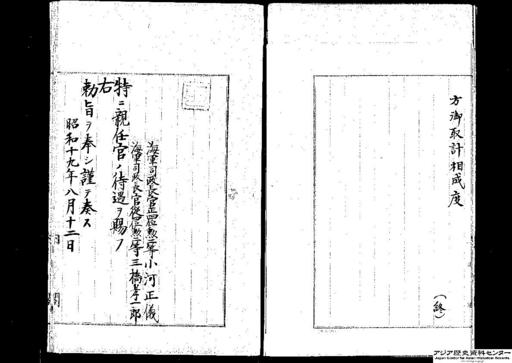 方御取計相成度
(終)
海軍司政長官正四位勲二等小河正儀
海軍司政長官従四位勲三等三橋孝一郎
特ニ親任官ノ待遇ヲ賜フ
右
勅旨ヲ奉シ謹テ奏ス
昭和十九年八月十二日
内閣
アジア歴史資料センター
Japan Center for Asian Historical Records